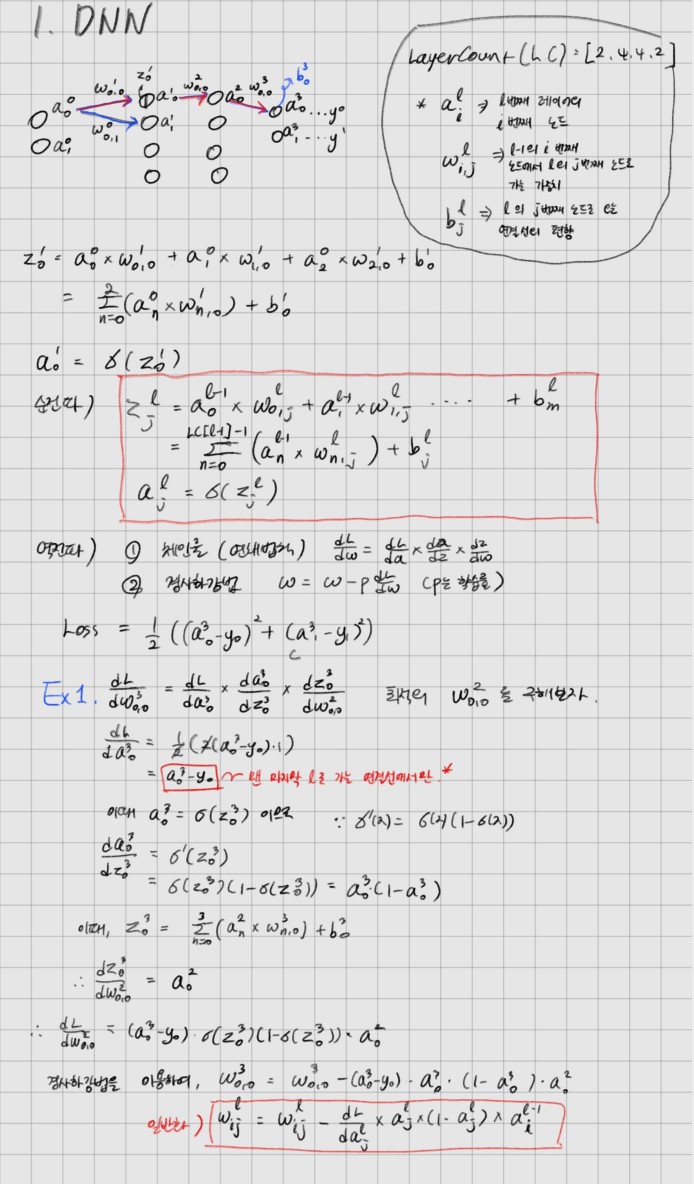 1. DNN
LayerCount(LC) = [2, 4, 4, 2]
* a_i^l ⇒ l번째 레이어의
i번째 노드
w_{i,j}^l ⇒ l-1의 i번째
노드에서 l의 j번째 노드로
가는 가중치
b_j^l ⇒ l의 j번째 노드로 가는
연결선의 편향
a_0^0 w_{0,0}^1 z_0^1 a_0^1 w_{0,0}^2 a_0^2 w_{0,0}^3 b_0^3 a_0^3 ... y_0
a_1^0 w_{0,1}^0 a_1^1 a_1^3 ... y^1
z_0^1 = a_0^0 × w_{0,0}^1 + a_1^0 × w_{1,0}^1 + a_2^0 × w_{2,0}^1 + b_0^1
= Σ_{n=0}^{2} (a_n^0 × w_{n,0}^1) + b_0^1
a_0^1 = σ(z_0^1)
순전파) z_j^l = a_0^{l-1} × w_{0,j}^l + a_1^{l-1} × w_{1,j}^l ···· + b_m^l
= Σ_{n=0}^{LC[l-1]-1} (a_n^{l-1} × w_{n,j}^l) + b_j^l
a_j^l = σ(z_j^l)
역전파) ① 체인룰 (연쇄법칙) dL/dw = dL/da × da/dz × dz/dw
② 경사하강법 w = w - p dL/dw (p는 학습률)
Loss = 1/2 ((a_0^3 - y_0)^2 + (a_1^3 - y_1)^2)
Ex1. dL/dw_{0,0}^3 = dL/da_0^3 × da_0^3/dz_0^3 × dz_0^3/dw_{0,0}^2 최적의 w_{0,0}^2 를 구해보자.
dL/da_0^3 = 1/2 (2(a_0^3 - y_0)·1)
= a_0^3 - y_0 ~ 맨 마지막 l로 가는 연결선에서만! *
이때 a_0^3 = σ(z_0^3) 이므로 ∵ σ'(z) = σ(z)(1-σ(z))
da_0^3/dz_0^3 = σ'(z_0^3)
= σ(z_0^3)(1-σ(z_0^3)) = a_0^3·(1-a_0^3)
이때, z_0^3 = Σ_{n=0}^{3} (a_n^2 × w_{n,0}^3) + b_0^3
∴ dz_0^3/dw_{0,0}^2 = a_0^2
∴ dL/dw_{0,0}^2 = (a_0^3 - y_0)·σ(z_0^3)(1-σ(z_0^3))·a_0^2
경사하강법을 이용하여, w_{0,0}^3 = w_{0,0}^3 - (a_0^3 - y_0)·a_0^3·(1-a_0^3)·a_0^2
일반화) w_{ij}^l = w_{ij}^l - dL/da_j^l × a_j^l × (1-a_j^l) × a_i^{l-1}